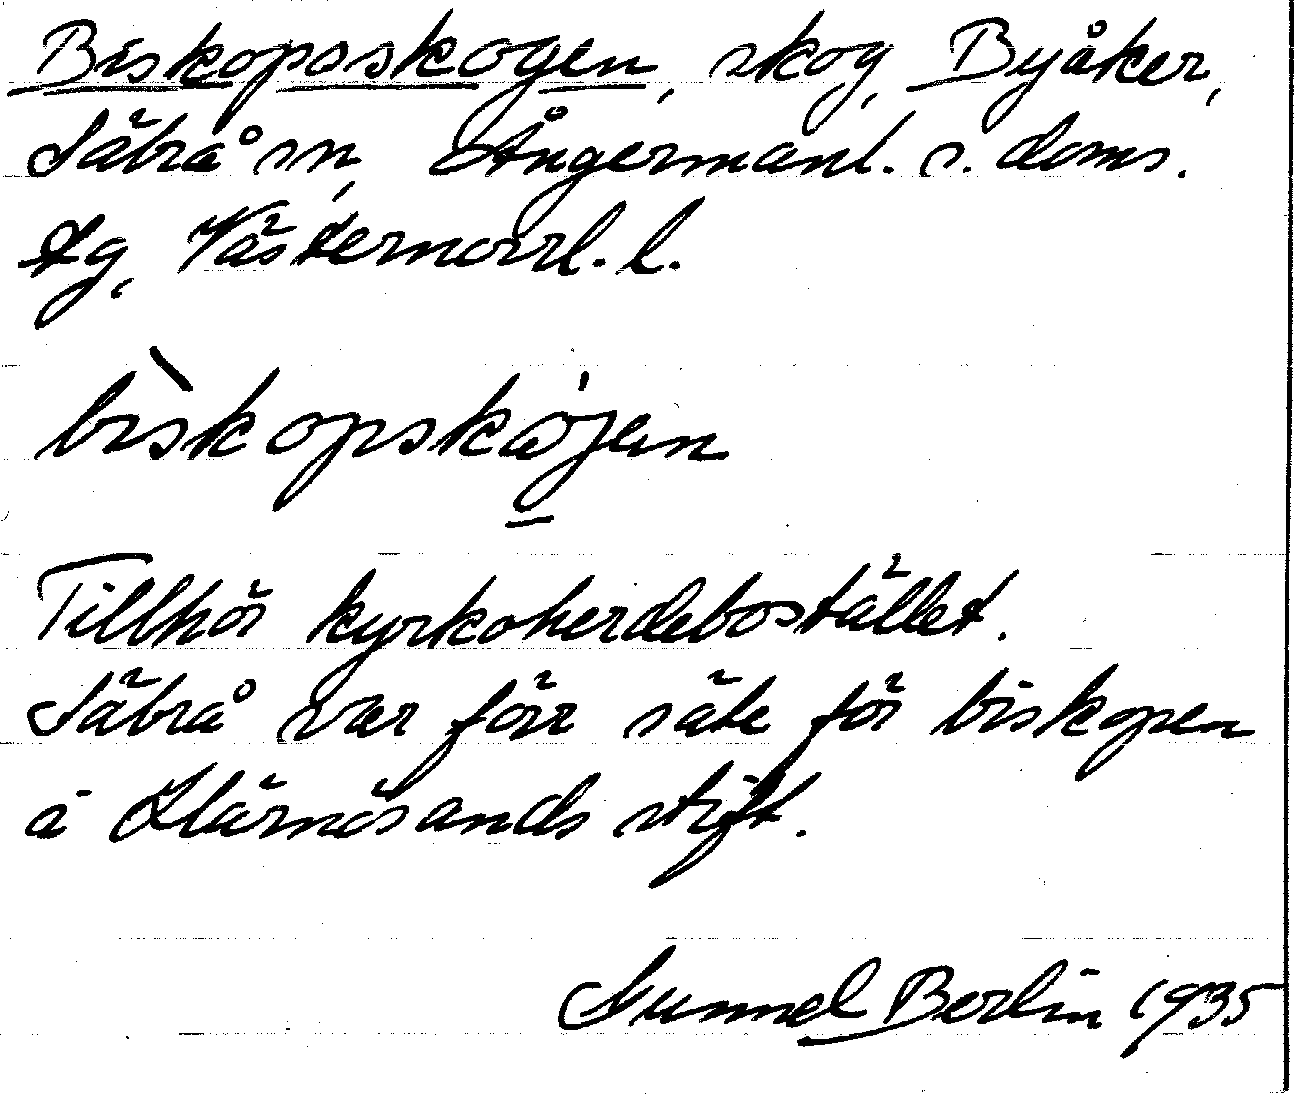 Biskopsskogen, skog, Byåker,
Säbrå sn, Ångermanl. s. doms.
tg, Västernorrl. l.
bìskopskåjen
Tillhör kyrkoherdebostället.
Säbrå var förr säte för biskopen
i Härnösands stift.
Gunnel Berlin 1935